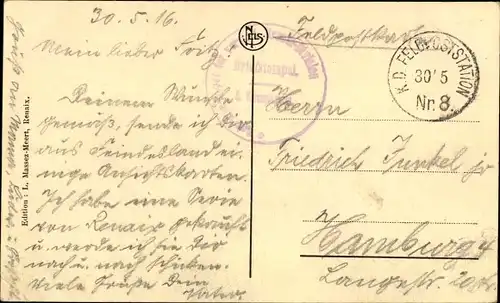 30.5.16.
Mein lieber Fritz!
Deinem Wunsche
gemäß, sende ich Dir
aus Feindesland ei-
nige Ansichtskarten.
Ich habe eine Serie
von Renaix gekauft
u. werde ich sie Dir
nach u. nach schicken.
Viele Grüße Dein
Vater
Edition: L. Massez-Meert, Renaix.
Feldpostkarte
K.D. FELDPOSTSTATION
30 5
Nr. 8.
Herrn
Friedrich Junkel jr
Hamburg 4